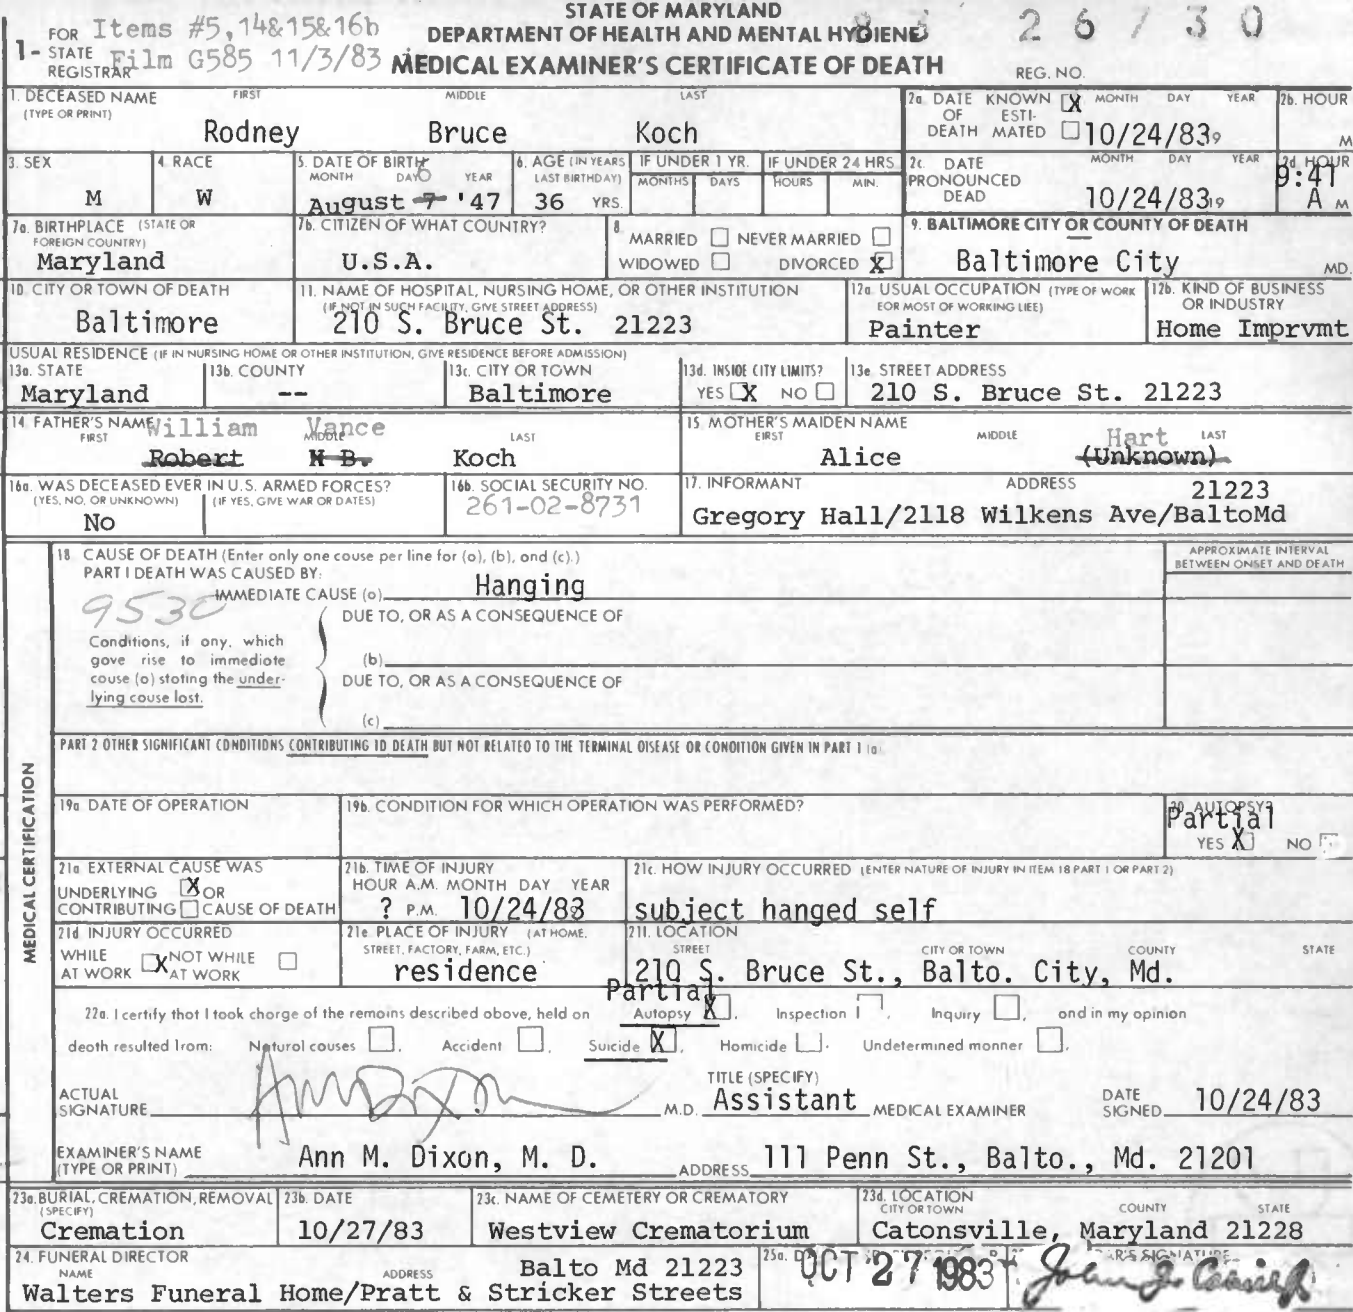 STATE OF MARYLAND
DEPARTMENT OF HEALTH AND MENTAL HYGIENE
MEDICAL EXAMINER'S CERTIFICATE OF DEATH
1- FOR STATE REGISTRAR
Items #5,14&15&16b
Film G585 11/3/83
83 26730
REG. NO.
1. DECEASED NAME (TYPE OR PRINT) FIRST MIDDLE LAST
Rodney Bruce Koch
2a. DATE OF DEATH KNOWN X ESTIMATED MONTH DAY YEAR
10/24/83 19
2b. HOUR
M
3. SEX
M
4. RACE
W
5. DATE OF BIRTH MONTH DAY YEAR
6
August 7 '47
6. AGE (IN YEARS LAST BIRTHDAY)
36 YRS.
IF UNDER 1 YR. MONTHS DAYS
IF UNDER 24 HRS. HOURS MIN.
2c. DATE PRONOUNCED DEAD MONTH DAY YEAR
10/24/83 19
2d. HOUR
9:41
A M
7a. BIRTHPLACE (STATE OR FOREIGN COUNTRY)
Maryland
7b. CITIZEN OF WHAT COUNTRY?
U.S.A.
8. MARRIED NEVER MARRIED
WIDOWED DIVORCED X
9. BALTIMORE CITY OR COUNTY OF DEATH
Baltimore City MD.
10. CITY OR TOWN OF DEATH
Baltimore
11. NAME OF HOSPITAL, NURSING HOME, OR OTHER INSTITUTION
(IF NOT IN SUCH FACILITY, GIVE STREET ADDRESS)
210 S. Bruce St. 21223
12a. USUAL OCCUPATION (TYPE OF WORK FOR MOST OF WORKING LIFE)
Painter
12b. KIND OF BUSINESS OR INDUSTRY
Home Imprvmt
USUAL RESIDENCE (IF IN NURSING HOME OR OTHER INSTITUTION, GIVE RESIDENCE BEFORE ADMISSION)
13a. STATE
Maryland
13b. COUNTY
--
13c. CITY OR TOWN
Baltimore
13d. INSIDE CITY LIMITS?
YES X NO
13e. STREET ADDRESS
210 S. Bruce St. 21223
14. FATHER'S NAME FIRST MIDDLE LAST
William Vance
Robert N B. Koch
15. MOTHER'S MAIDEN NAME FIRST MIDDLE LAST
Hart
Alice (Unknown)
16a. WAS DECEASED EVER IN U.S. ARMED FORCES?
(YES, NO, OR UNKNOWN) (IF YES, GIVE WAR OR DATES)
No
16b. SOCIAL SECURITY NO.
261-02-8731
17. INFORMANT ADDRESS
21223
Gregory Hall/2118 Wilkens Ave/BaltoMd
MEDICAL CERTIFICATION
18. CAUSE OF DEATH (Enter only one cause per line for (a), (b), and (c).)
PART I DEATH WAS CAUSED BY:
IMMEDIATE CAUSE (a) Hanging
9530
APPROXIMATE INTERVAL BETWEEN ONSET AND DEATH
DUE TO, OR AS A CONSEQUENCE OF
Conditions, if any, which
gave rise to immediate
cause (a) stating the under-
lying cause last.
(b)
DUE TO, OR AS A CONSEQUENCE OF
(c)
PART 2 OTHER SIGNIFICANT CONDITIONS CONTRIBUTING TO DEATH BUT NOT RELATED TO THE TERMINAL DISEASE OR CONDITION GIVEN IN PART I (a)
19a. DATE OF OPERATION
19b. CONDITION FOR WHICH OPERATION WAS PERFORMED?
20. AUTOPSY?
Partial
YES X NO
21a. EXTERNAL CAUSE WAS
UNDERLYING X OR
CONTRIBUTING CAUSE OF DEATH
21b. TIME OF INJURY
HOUR A.M. MONTH DAY YEAR
? P.M. 10/24/83
21c. HOW INJURY OCCURRED (ENTER NATURE OF INJURY IN ITEM 18 PART I OR PART 2)
subject hanged self
21d. INJURY OCCURRED
WHILE AT WORK X NOT WHILE AT WORK
21e. PLACE OF INJURY (AT HOME, STREET, FACTORY, FARM, ETC.)
residence
21f. LOCATION
STREET CITY OR TOWN COUNTY STATE
210 S. Bruce St., Balto. City, Md.
Partial
22a. I certify that I took charge of the remains described above, held on Autopsy X, Inspection, Inquiry, and in my opinion
death resulted from: Natural causes, Accident, Suicide X, Homicide. Undetermined manner.
ACTUAL SIGNATURE M.D.
TITLE (SPECIFY)
Assistant MEDICAL EXAMINER
DATE SIGNED 10/24/83
EXAMINER'S NAME (TYPE OR PRINT) Ann M. Dixon, M. D.
ADDRESS 111 Penn St., Balto., Md. 21201
23a. BURIAL, CREMATION, REMOVAL (SPECIFY)
Cremation
23b. DATE
10/27/83
23c. NAME OF CEMETERY OR CREMATORY
Westview Crematorium
23d. LOCATION CITY OR TOWN COUNTY STATE
Catonsville, Maryland 21228
24. FUNERAL DIRECTOR
NAME ADDRESS
Balto Md 21223
Walters Funeral Home/Pratt & Stricker Streets
25a.
OCT 27 1983
SIGNATURE